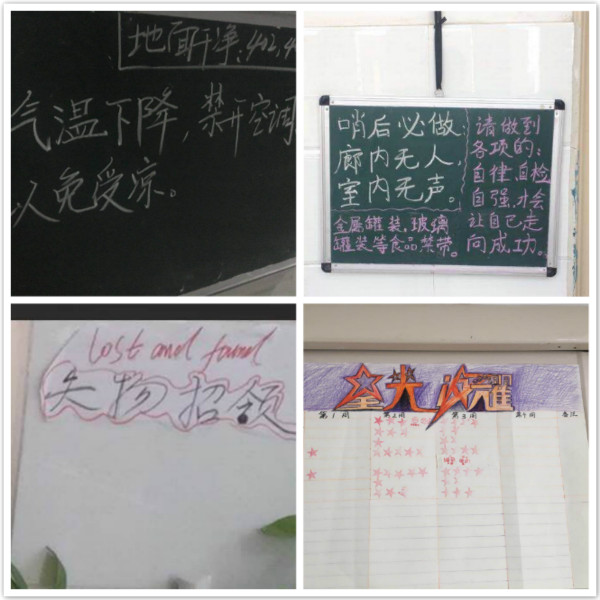 地面干净:402,4
气温下降,禁开空调
以免受凉。
哨后必做:
廊内无人,
室内无声。
金属罐装、玻璃
罐装等食品禁带。
请做到
各项的:
自律、自检
自强,才会
让自己走
向成功。
Lost and found
失物招领
星光闪耀
第1周 第2周 第3周 第4周 备注